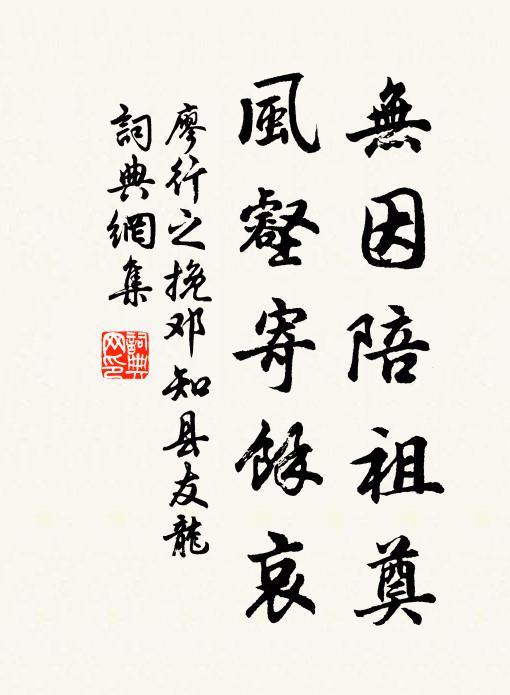 無因陪祖奠
風壑寄餘哀
廖行之挽邓知县友龍
詞典網集
詞典网印